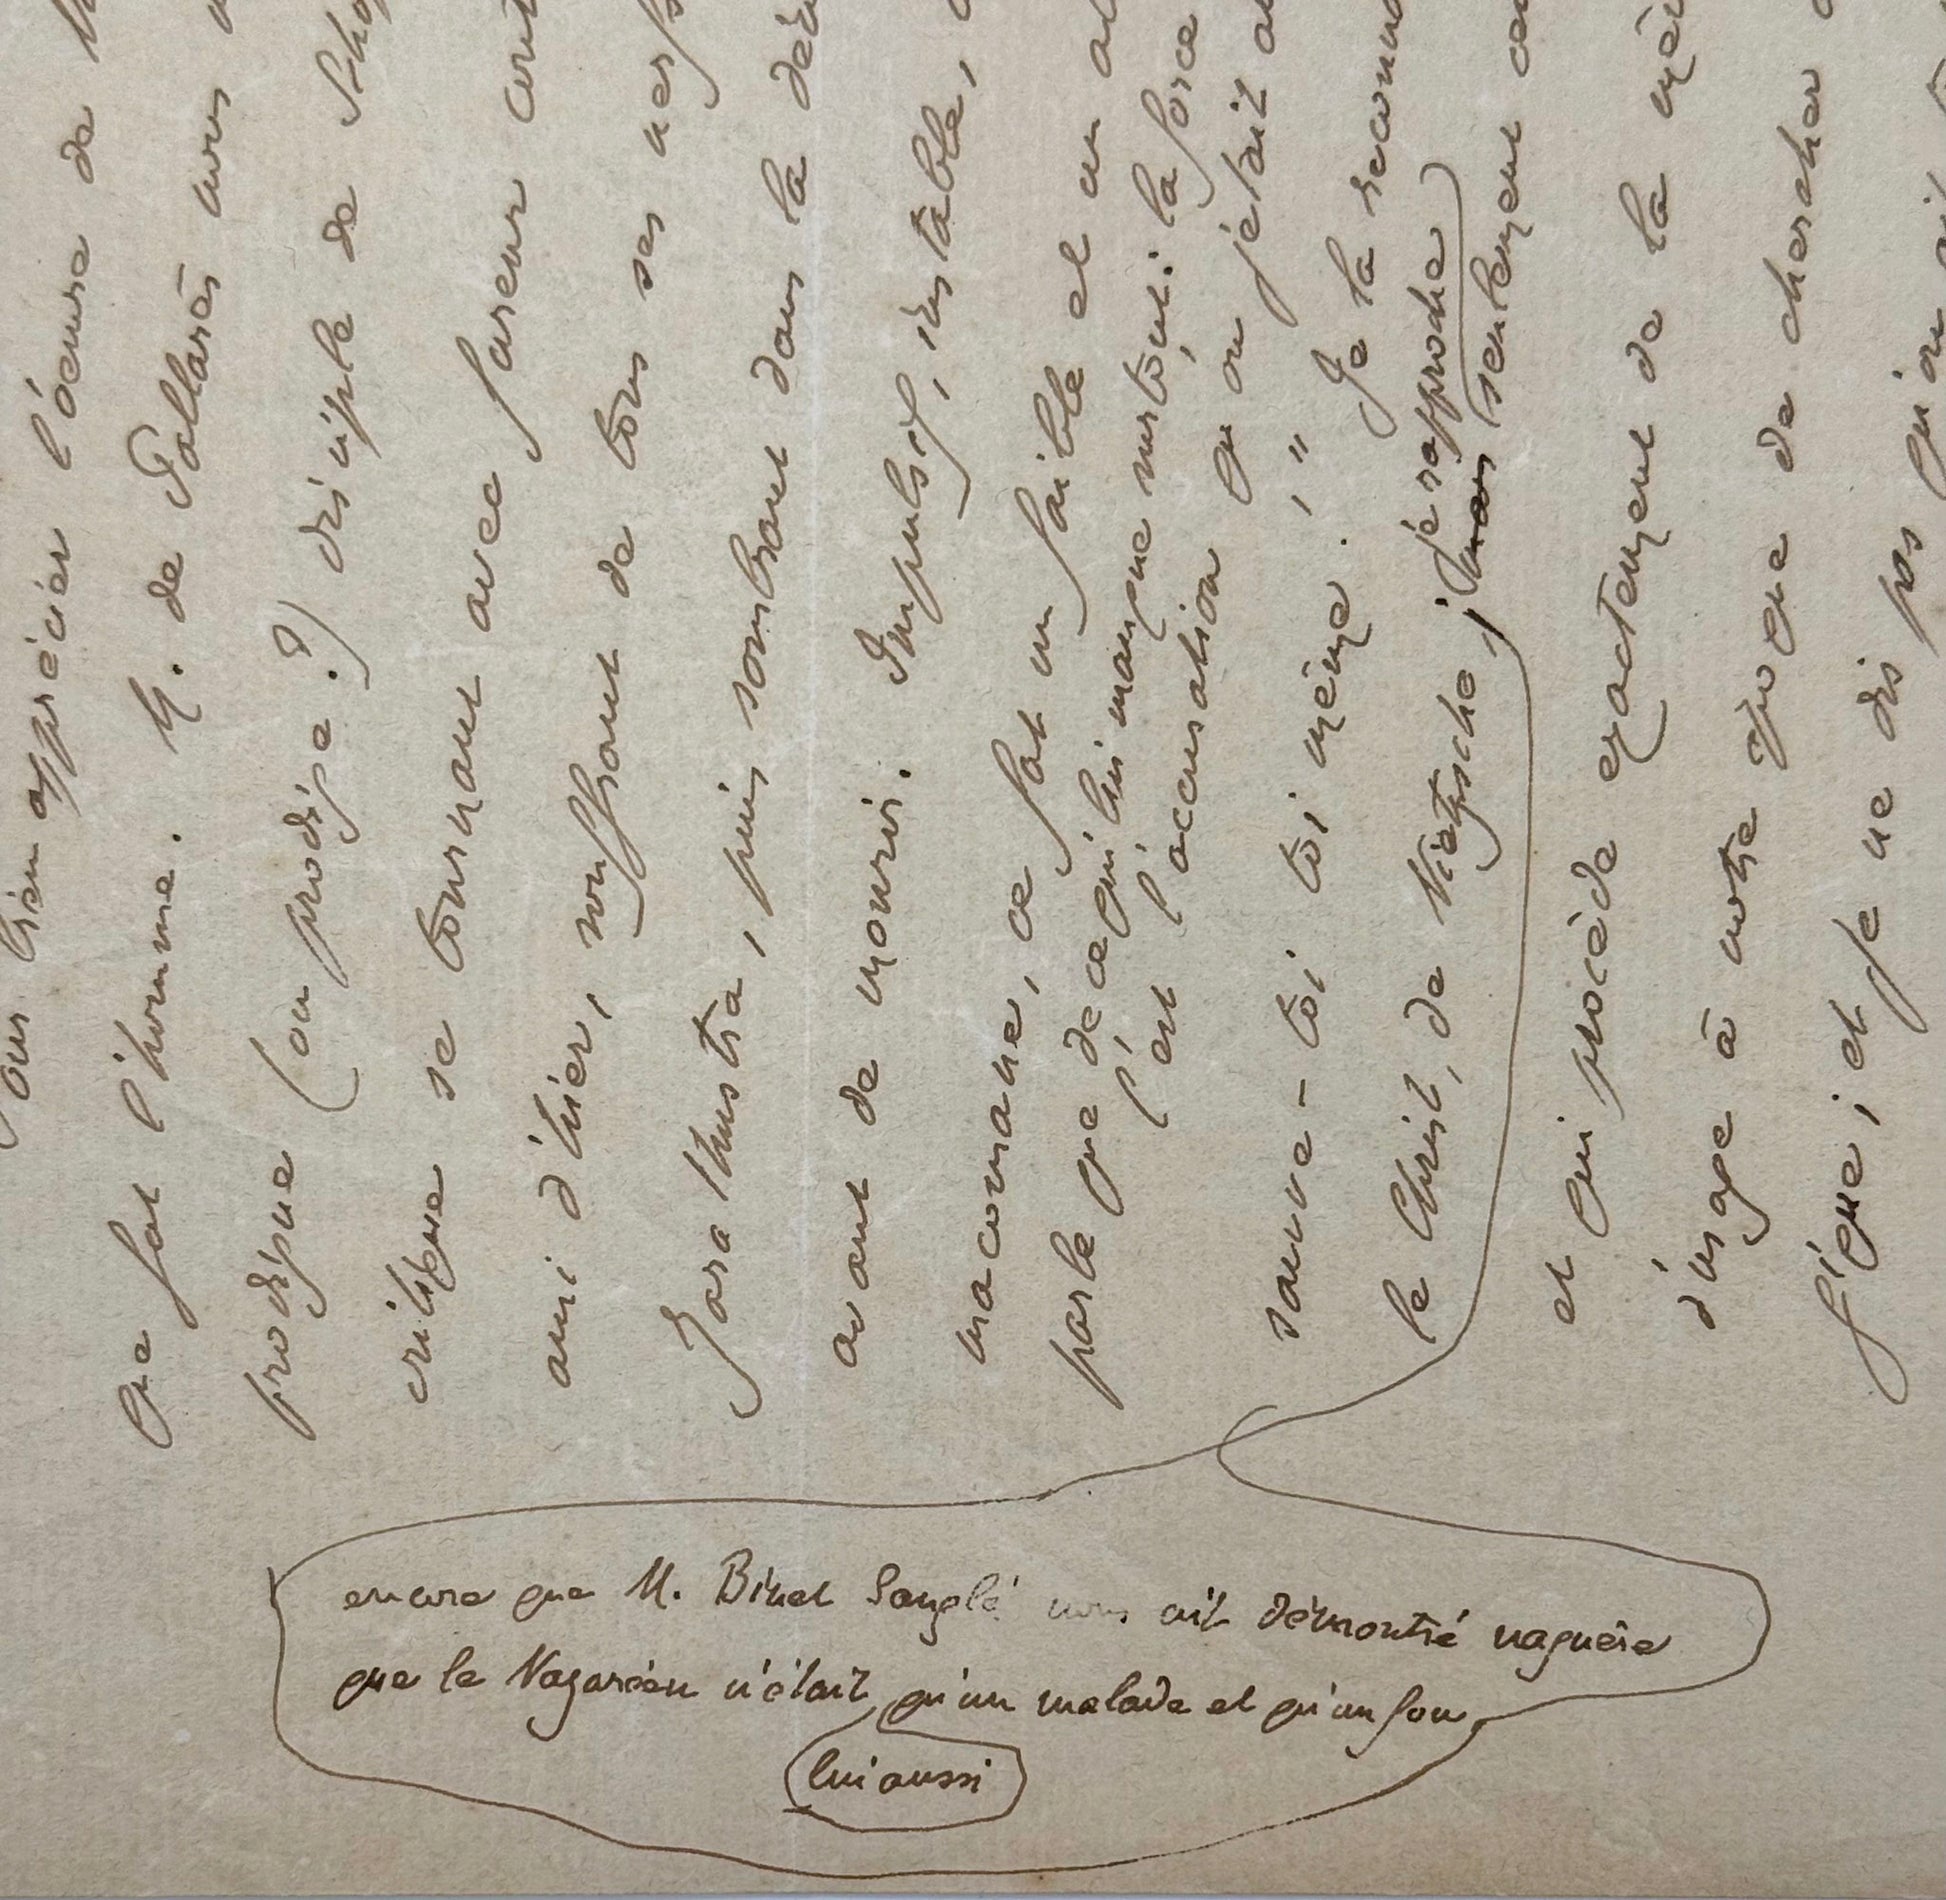 bien apprécier l'oeuvre de
que fut l'homme. M. de Pallarès nous
prodigue (ou prodige ?) disciple de
critique se tournant avec fureur
ami d'hier, souffrant de tous ses nerfs
Zarathustra, puis sombrant dans la
avant de mourir. Impulsif, instable,
maconane, ce fut un faible et un
parle que de ce qui lui manque surtout : la force
c'est l'accusation qu'on jetait
sauve-toi toi même. " Je la
je rapproche
le Christ, de Nietzsche ; mais seulement
et qui procède exactement de la
d'usage à notre époque de chercher
f'que ; et je ne dis pas qu'on
encore que M. Binet Sanglé nous ait démontré naguère
que le Nazaréen n'était qu'un malade et qu'un fou
lui aussi